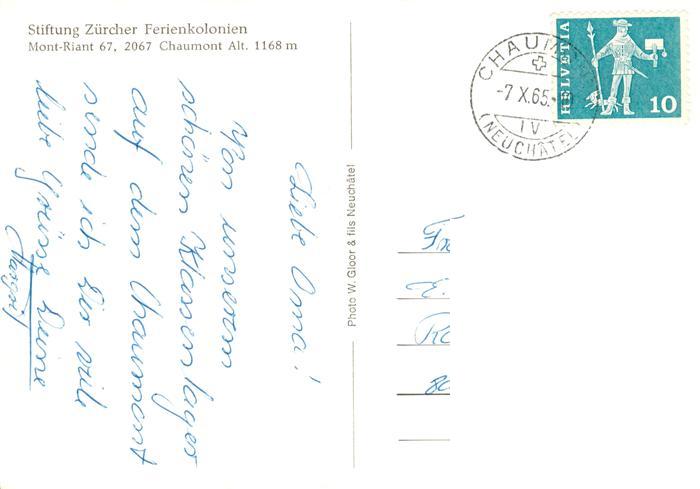 Stiftung Zürcher Ferienkolonien
Mont-Riant 67, 2067 Chaumont Alt. 1168 m
Liebe Oma!
Von unserem
schönen Klassenlager
auf dem Chaumont
sende ich Dir viele
liebe Grüsse Deine
Photo W. Gloor & fils Neuchâtel
HELVETIA
10
CHAUMONT
-7.X.65.-
IV
(NEUCHÂTEL)
Fr
E.